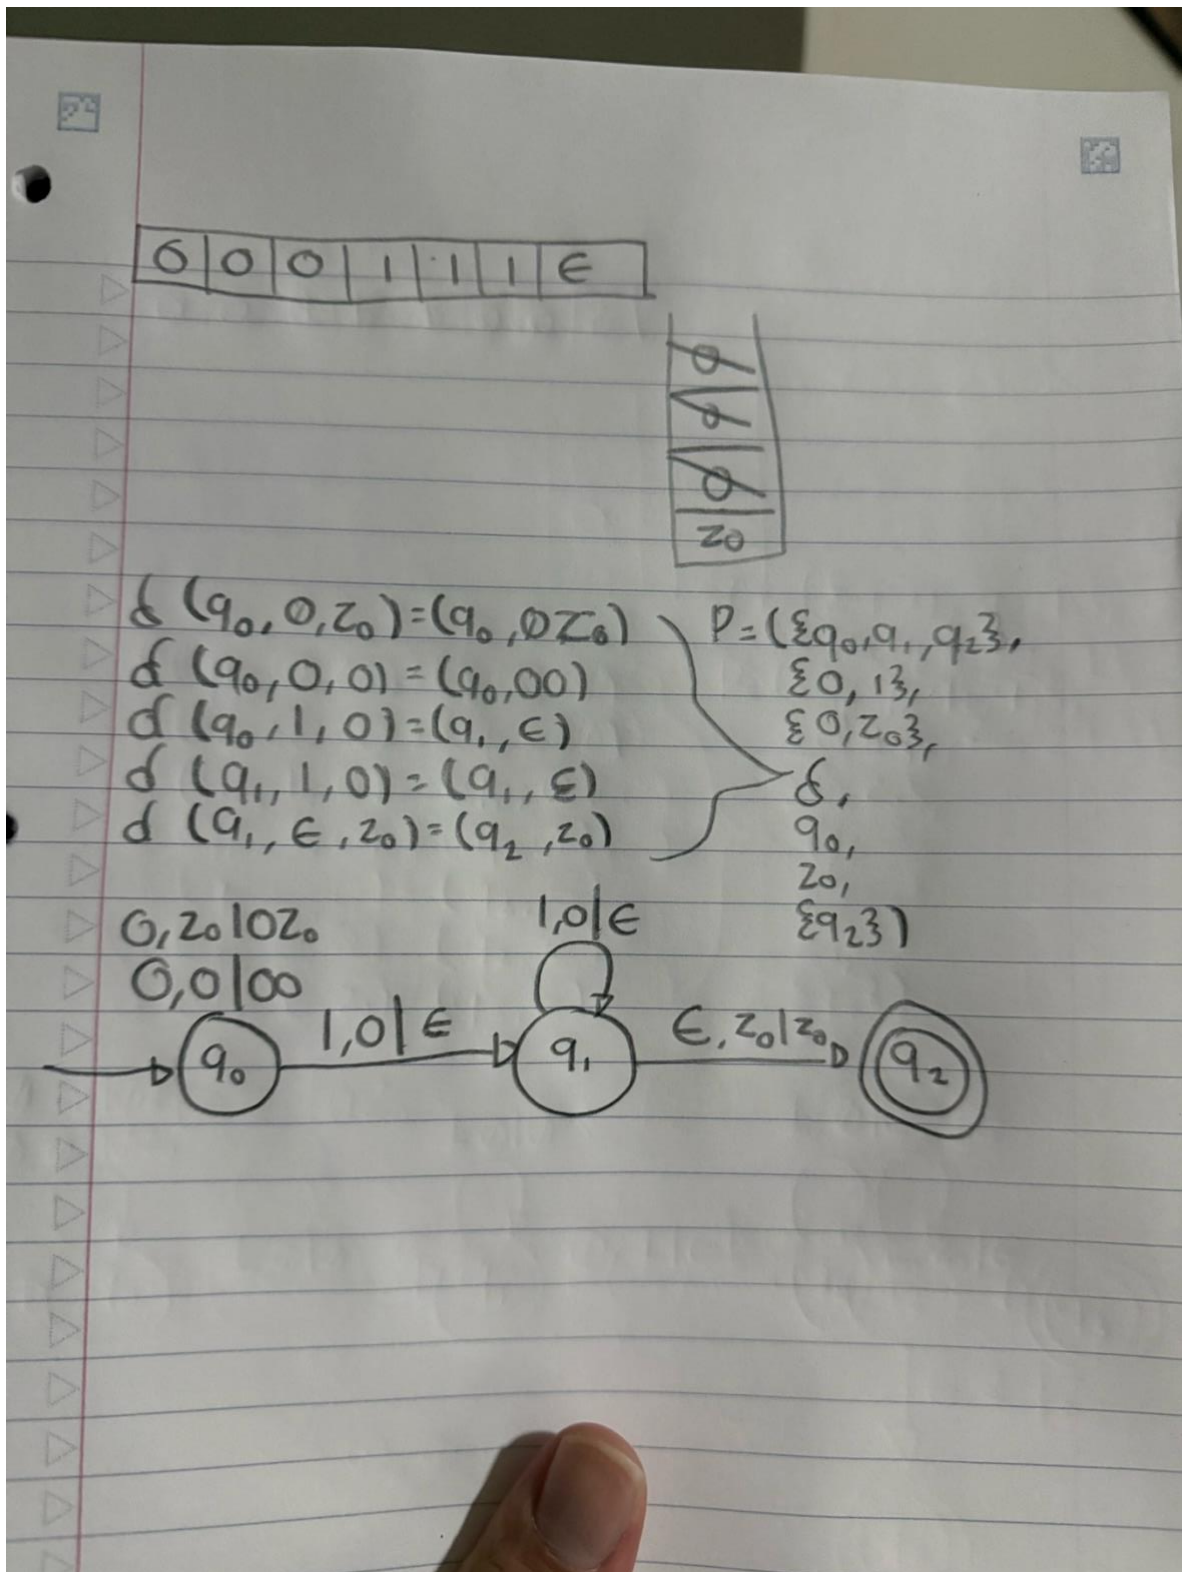 0 0 0 1 1 1 ϵ
0
0
0
z0
δ (q0, 0, z0) = (q0, 0z0)
δ (q0, 0, 0) = (q0, 00)
δ (q0, 1, 0) = (q1, ϵ)
δ (q1, 1, 0) = (q1, ε)
δ (q1, ϵ, z0) = (q2, z0)
P = ({q0, q1, q2},
{0, 1},
{0, z0},
δ,
q0,
z0,
{q2})
0, z0 | 0z0
0, 0 | 00
1, 0 | ϵ
1, 0 | ϵ
ϵ, z0 | z0
q0
q1
q2